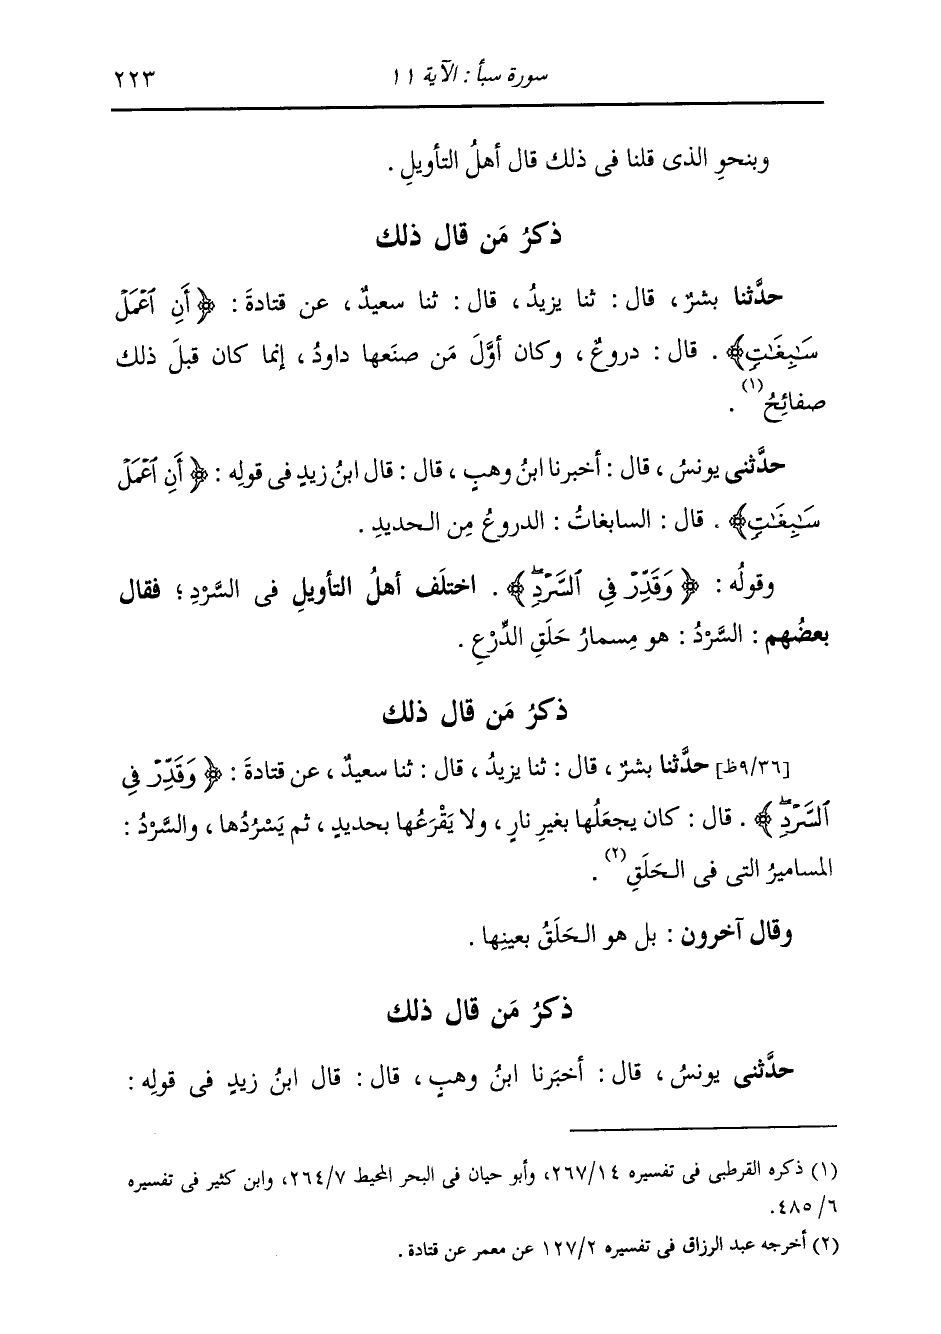 سورة سبأ : الآية ١١ ٢٢٣
وبنحوِ الذى قلنا فى ذلك قال أهلُ التأويلِ .
ذكرُ مَن قال ذلك
حدَّثنا بشرٌ ، قال : ثنا يزيدُ ، قال : ثنا سعيدٌ ، عن قتادةَ : ﴿ أَنِ ٱعْمَلْ
سَٰبِغَٰتٍ ﴾ . قال : دروعٌ ، وكان أوَّلَ مَن صنَعها داودُ ، إنما كان قبلَ ذلك
صفائِحُ (١) .
حدَّثنى يونسُ ، قال : أخبرنا ابنُ وهبٍ ، قال : قال ابنُ زيدٍ فى قولِه : ﴿ أَنِ ٱعْمَلْ
سَٰبِغَٰتٍ ﴾ . قال : السابغاتُ : الدروعُ مِن الحديدِ .
وقولُه : ﴿ وَقَدِّرْ فِى ٱلسَّرْدِۖ ﴾ . اختلَف أهلُ التأويلِ فى السَّرْدِ ؛ فقال
بعضُهم : السَّرْدُ : هو مِسمارُ حَلَقِ الدِّرْعِ .
ذكرُ مَن قال ذلك
[٩/٣٦ظ] حدَّثنا بشرٌ ، قال : ثنا يزيدُ ، قال : ثنا سعيدٌ ، عن قتادةَ : ﴿ وَقَدِّرْ فِى
ٱلسَّرْدِۖ ﴾ . قال : كان يجعَلُها بغيرِ نارٍ ، ولا يَقْرَعُها بحديدٍ ، ثم يَسْرُدُها ، والسَّرْدُ :
المساميرُ التى فى الحَلَقِ (٢) .
وقال آخرون : بل هو الحَلَقُ بعينِها .
ذكرُ مَن قال ذلك
حدَّثنى يونسُ ، قال : أخبَرنا ابنُ وهبٍ ، قال : قال ابنُ زيدٍ فى قولِه :
(١) ذكره القرطبى فى تفسيره ٢٦٧/١٤، وأبو حيان فى البحر المحيط ٢٦٤/٧، وابن كثير فى تفسيره
٤٨٥/٦.
(٢) أخرجه عبد الرزاق فى تفسيره ١٢٧/٢ عن معمر عن قتادة .